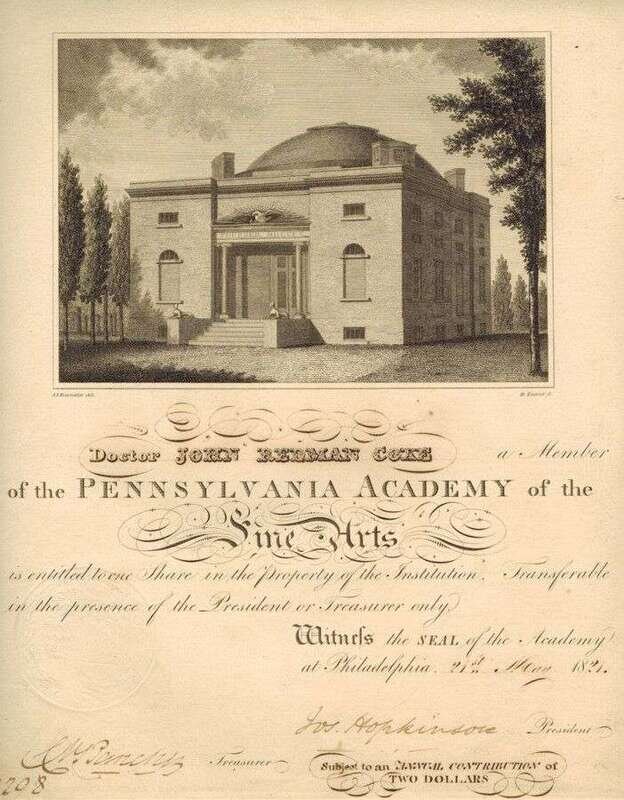 Doctor JOHN REDMAN COXE a Member
of the PENNSYLVANIA ACADEMY of the
Fine Arts
is entitled to one Share in the Property of the Institution, Transferable
in the presence of the President or Treasurer only
Witness the SEAL of the Academy
at Philadelphia. 21st May 1821.
Jos. Hopkinson President
Treasurer
Subject to an ANNUAL CONTRIBUTION of
TWO DOLLARS
208